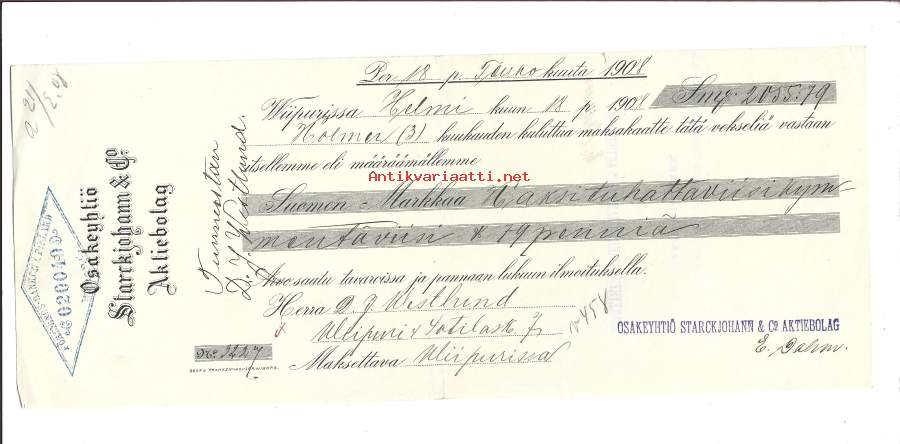 Per 18 p. Touko kuuta 1908
Wiipurissa Helmi kuun 18 p. 1908 Smg: 2055:79
Kolmen (3) kuukauden kuluttua maksakaatte tätä vekseliä vastaan
itsellemme eli määräämällemme
Antikvariaatti.net
Suomen Markkaa Kaksituhattaviisikym-
mentäviisi & 79 penniä
Arvo saatu tavaroissa ja pannaan lukuun ilmoituksella.
Herra D. J. Westlund
Wiipuri
Maksettava Wiipurissa
No. 3227
OSAKEYHTIÖ STARCKJOHANN & Co AKTIEBOLAG
E. Dahm.
v 458
Tunnustan
D. J. Westlund.
Osakeyhtiö
Starckjohann & Co
Aktiebolag
020049